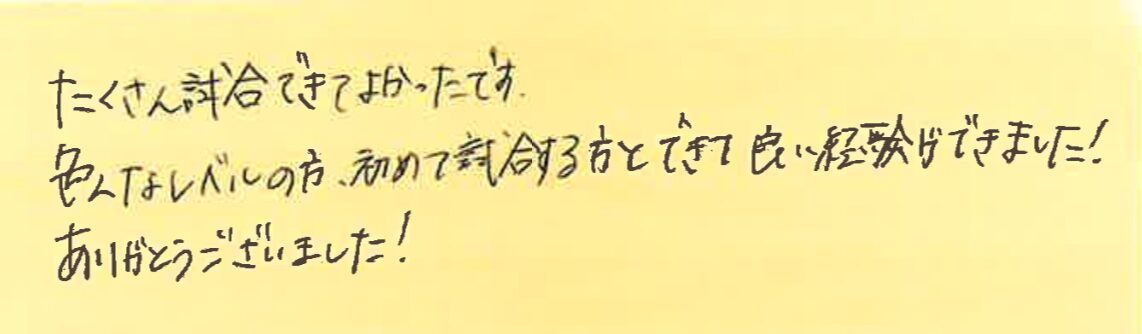 たくさん試合できてよかったです.
色んなレベルの方、初めて試合する方とできて良い経験ができました!
ありがとうございました!